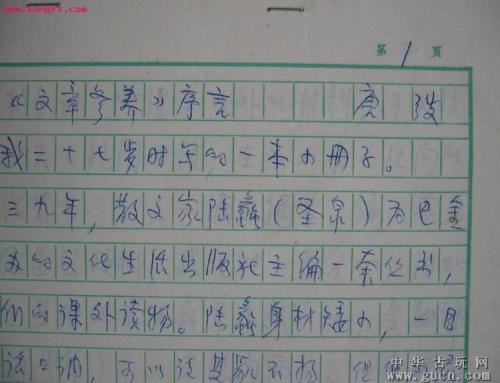 www.kongfz.com
第 1 页
《文章修养》序言 唐弢
我二十七岁时写的一本小册子。
三九年,散文家陆蠡(圣泉)为巴金
办的文化生活出版社主编一套丛书,
们的课外读物。陆蠡身材矮小,一目
话口讷,可以说其貌不扬,但
中华古玩网
www.gucn.com